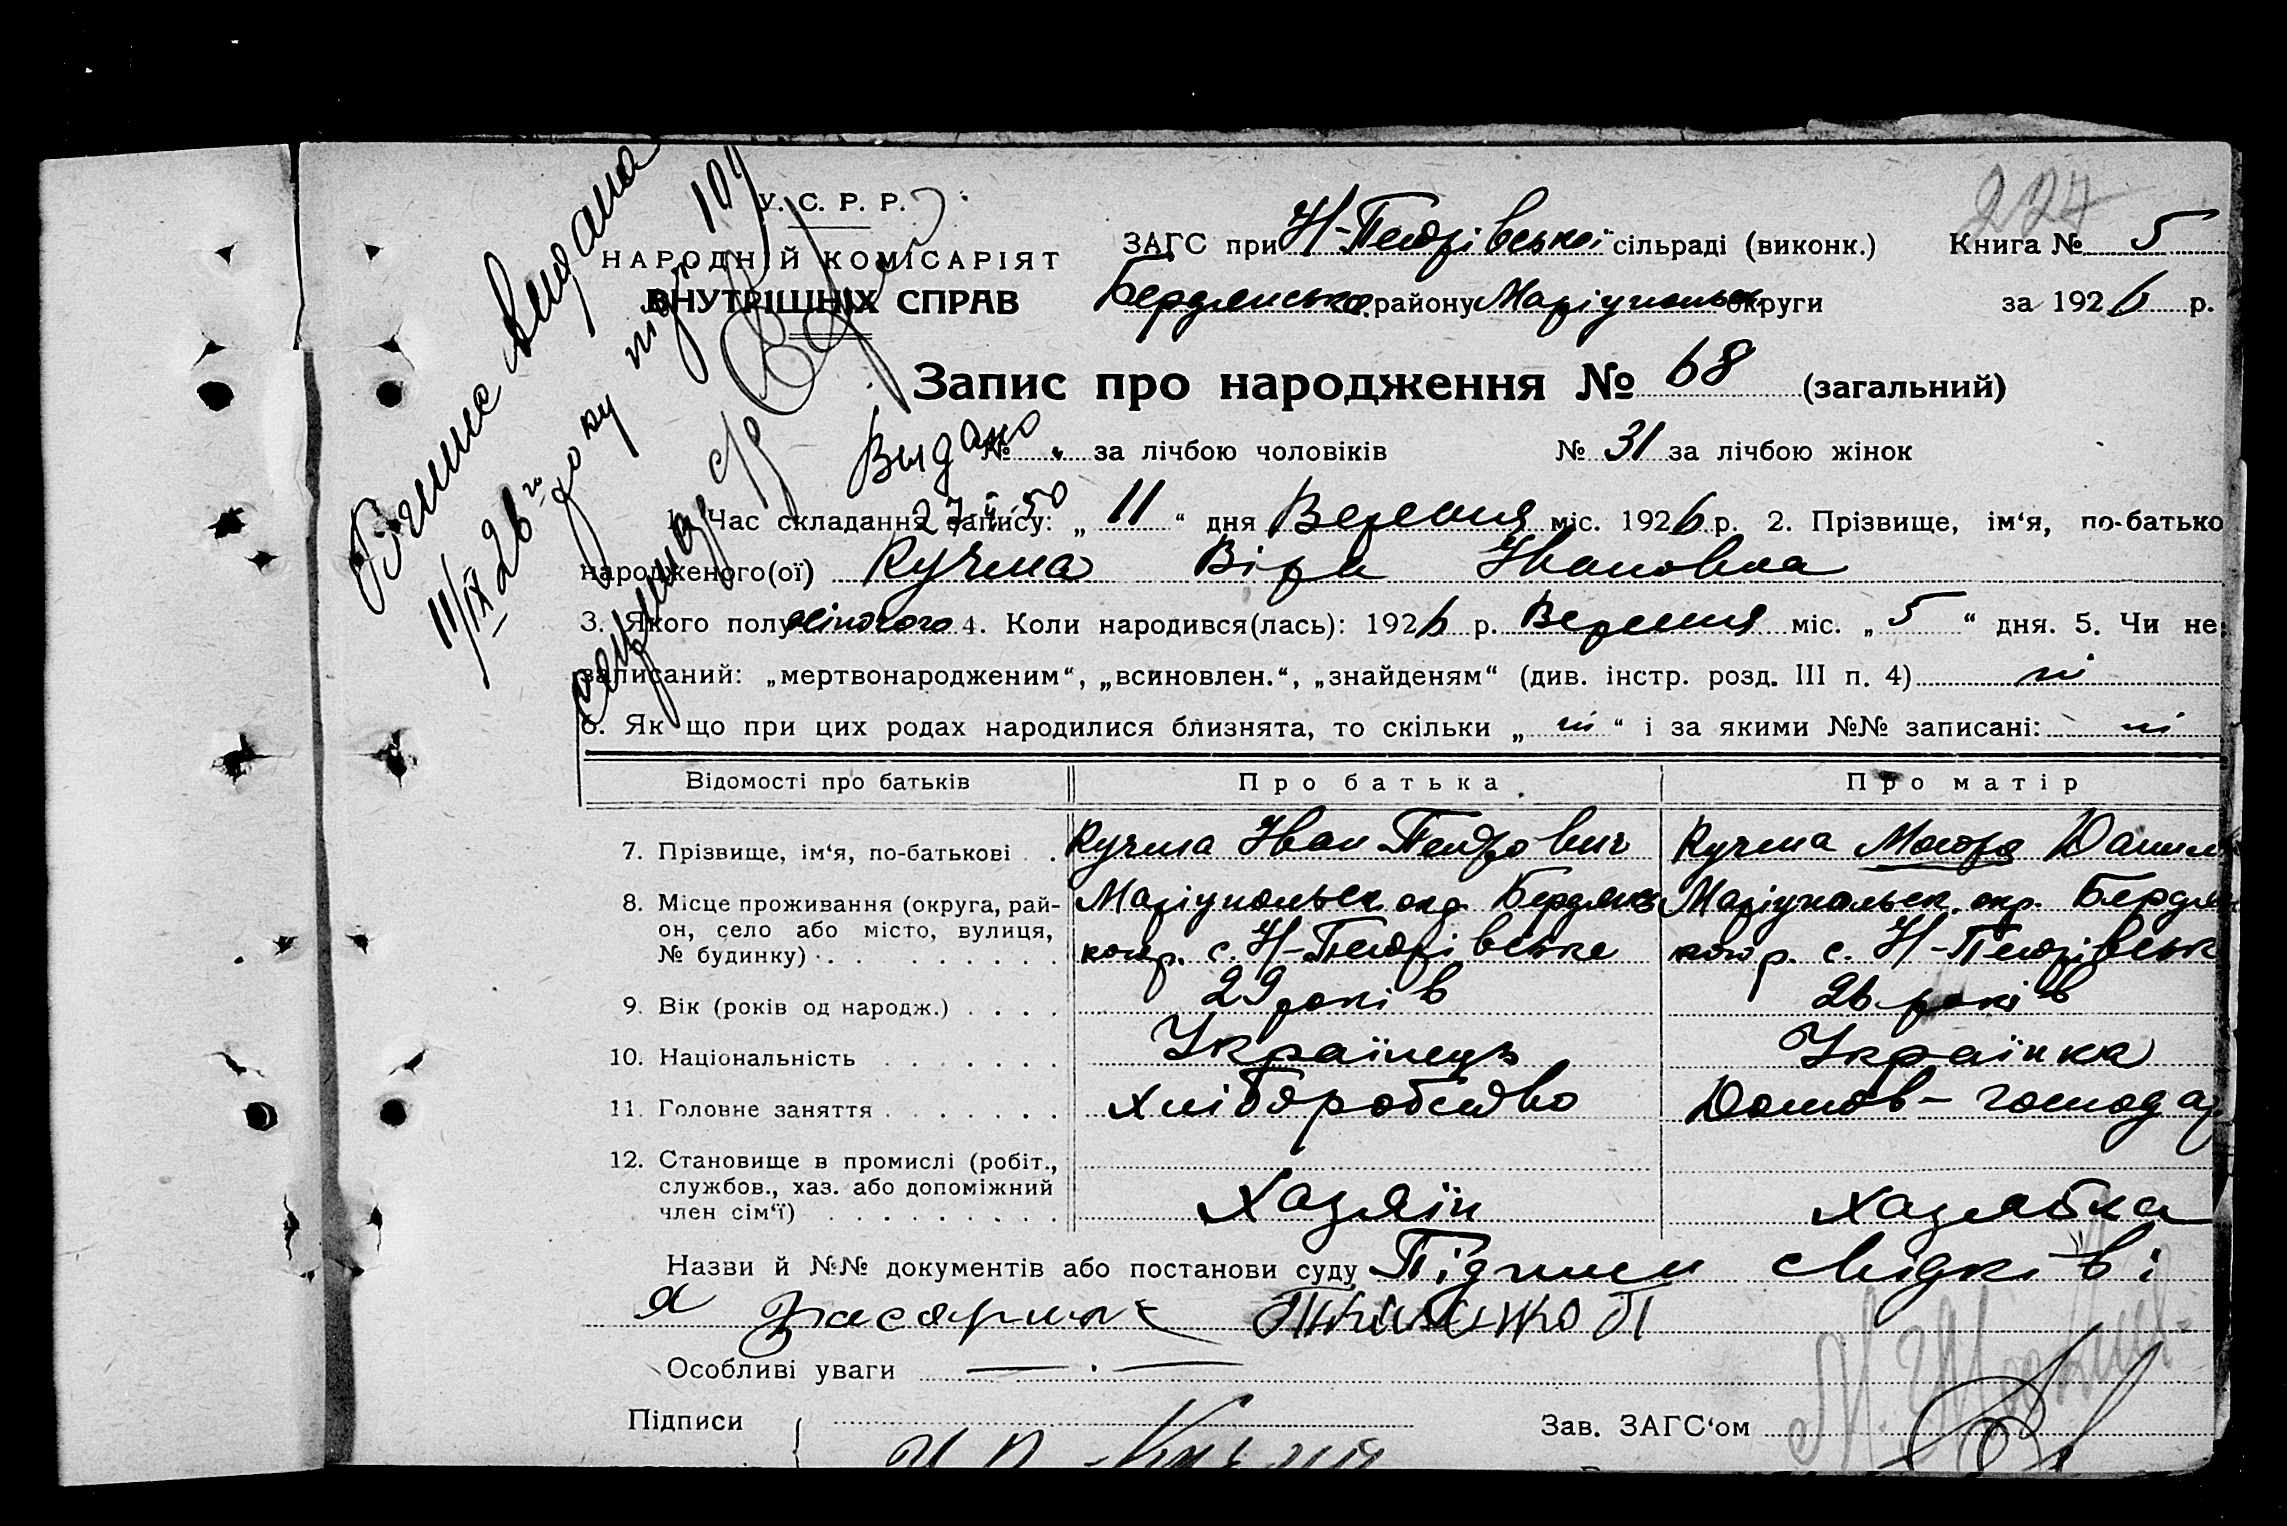 224
У. С. Р. Р.
НАРОДНІЙ КОМІСАРІЯТ
ВНУТРІШНІХ СПРАВ
ЗАГС при Н-Петрівської сільраді (виконк.) Книга № 5
Бердянськ. району Маріупольськ округи за 1926 р.
Запис про народження № 68 (загальний)
№ за лічбою чоловіків № 31 за лічбою жінок
Выдано
1. Час складання запису: „ 11 “ дня Вересня міс. 1926 р. 2. Прізвище, ім‘я, по-батькo
народженого(ої) Кучма Віра Івановна
3. Якого полу жіночого 4. Коли народився(лась): 1926 р. Вересня міс. „ 5 “ дня. 5. Чи не
записаний: „мертвонародженим“, „всиновлен.“, „знайденям“ (див. інстр. розд. III п. 4) ні
6. Як що при цих родах народилися близнята, то скільки „ ні “ і за якими №№ записані: ні
Відомості про батьків Про батька Про матір
7. Прізвище, ім‘я, по-батькові Кучма Іван Петрович Кучма Мотря Данил
8. Місце проживання (округа, рай-
он, село або місто, вулиця,
№ будинку)
Маріупольськ окр. Бердянсь Маріупольськ. окр. Бердян
с. Н-Петрівське с. Н-Петрівськ
9. Вік (років од народж.) 29 років 26 років
10. Національність Українець Українка
11. Головне заняття Хліборобство Домов-господар
12. Становище в промислі (робіт.,
службов., хаз. або допоміжний
член сім‘ї)
Хазяїн Хазяйка
Назви й №№ документів або постанови суду Підписи свідків:
Особливі уваги
Підписи Зав. ЗАГС‘ом